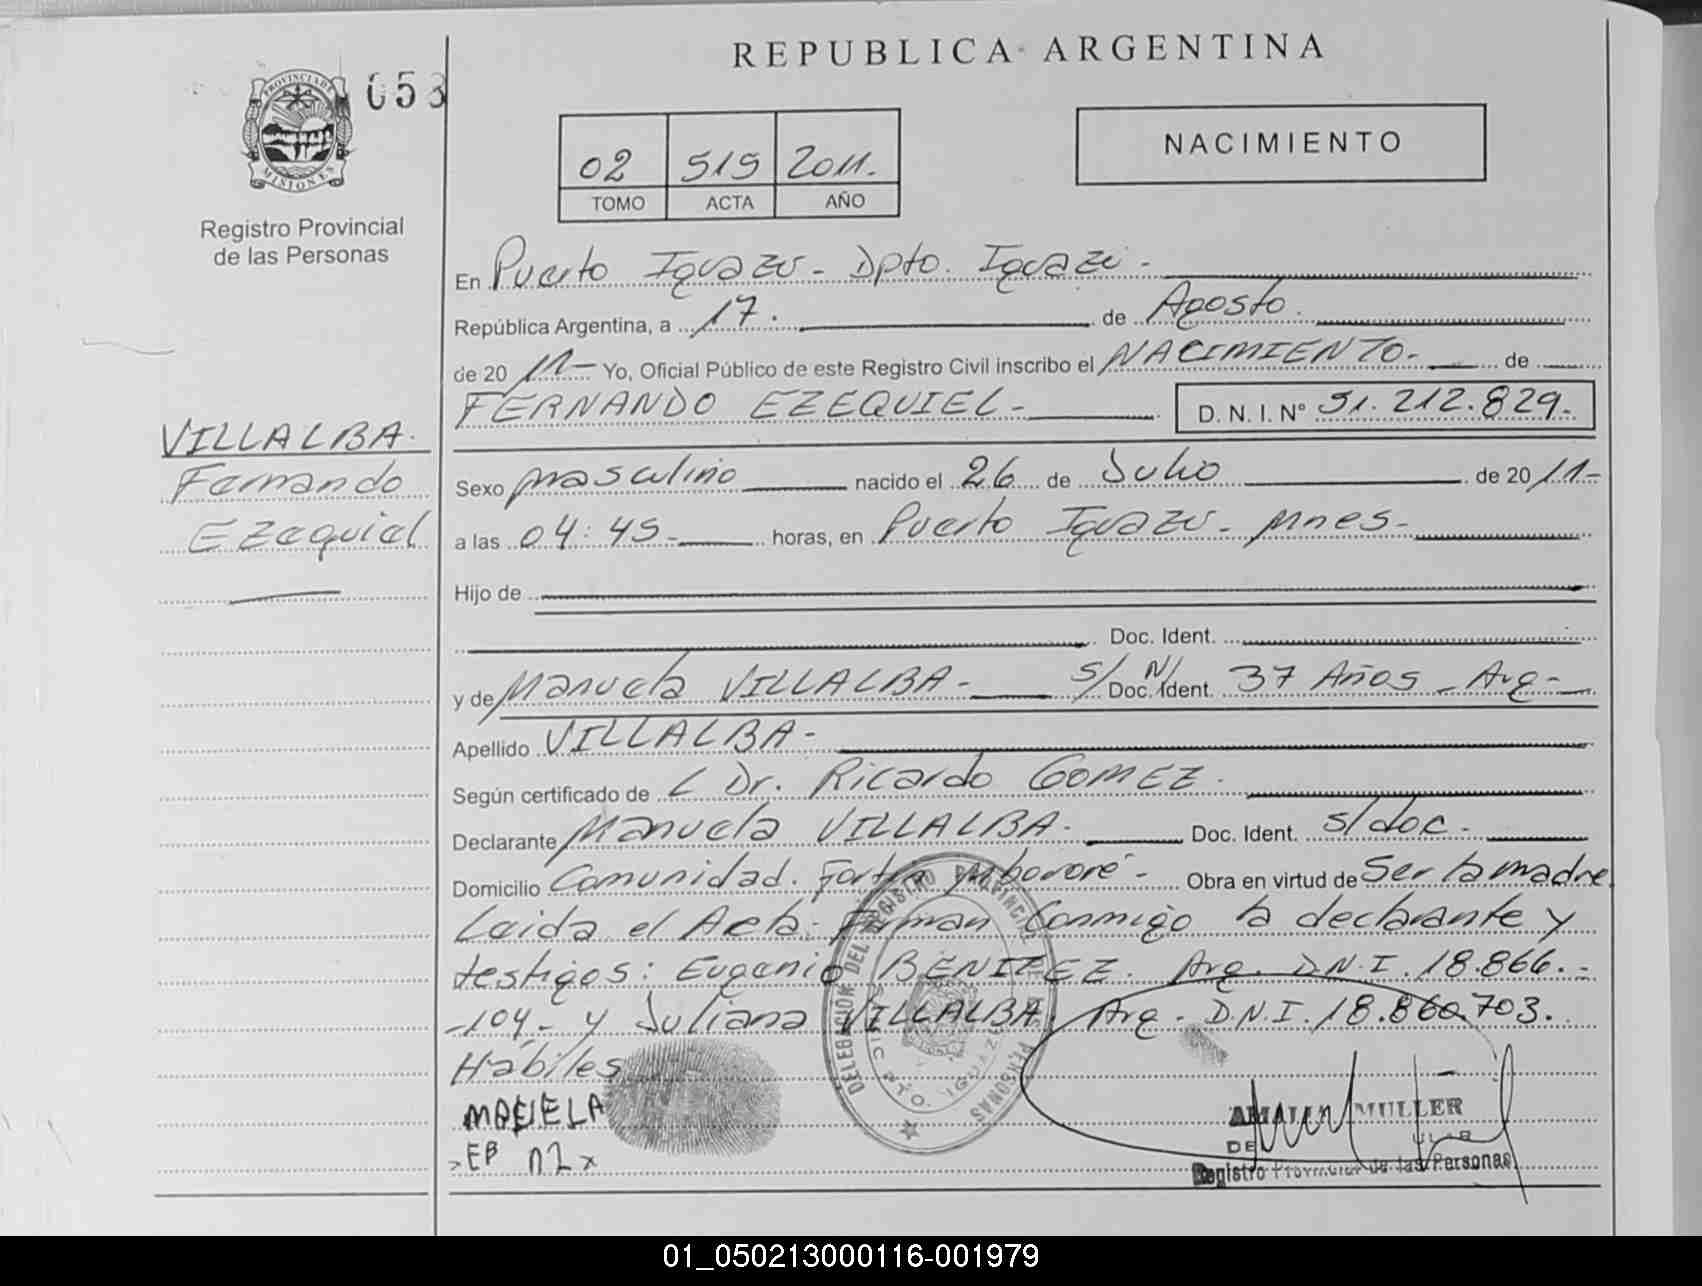 REPUBLICA ARGENTINA
PROVINCIA DE
MISIONES
053
Registro Provincial
de las Personas
02 519 2011.
TOMO ACTA AÑO
NACIMIENTO
En Puerto Iguazu - Dpto. Iguazu -
República Argentina, a 17. de Agosto.
de 20 11- Yo, Oficial Público de este Registro Civil inscribo el NACIMIENTO. de
FERNANDO EZEQUIEL - D. N. I. N° 51.212.829-
VILLALBA.
Fernando
Ezequiel
Sexo masculino nacido el 26 de Julio de 20 11-
a las 04:45- horas, en Puerto Iguazu - Mnes-
Hijo de
Doc. Ident.
y de Manuela VILLALBA - S/N/ Doc. Ident. 37 Años - Arg-
Apellido VILLALBA -
Según certificado de L Dr. Ricardo GOMEZ.
Declarante Manuela VILLALBA. Doc. Ident. s/doc -
Domicilio Comunidad. Fortin Mbororé - Obra en virtud de Ser la madre
Leida el Acta. Firman Conmigo la declarante y
testigos: Eugenio BENITEZ. Arg. D.N.I. 18.866.-
-104- y Juliana VILLALBA Arg - D.N.I. 18.860.703.
Hábiles
DELEGACION DEL REGISTRO PROVINCIAL DE LAS PERSONAS
PTO. IGUAZU
MULLER
Registro Provincial de las Personas
01_050213000116-001979